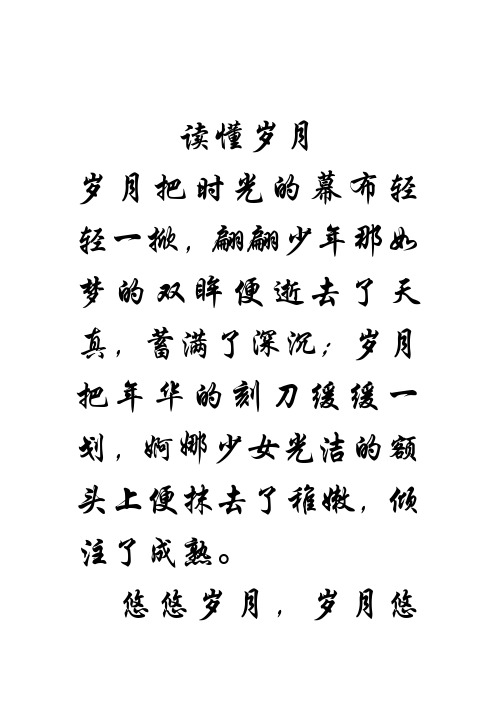 读懂岁月
岁月把时光的幕布轻
轻一掀，翩翩少年那如
梦的双眸便逝去了天
真，蓄满了深沉；岁月
把年华的刻刀缓缓一
划，婀娜少女光洁的额
头上便抹去了稚嫩，倾
注了成熟。
悠悠岁月，岁月悠